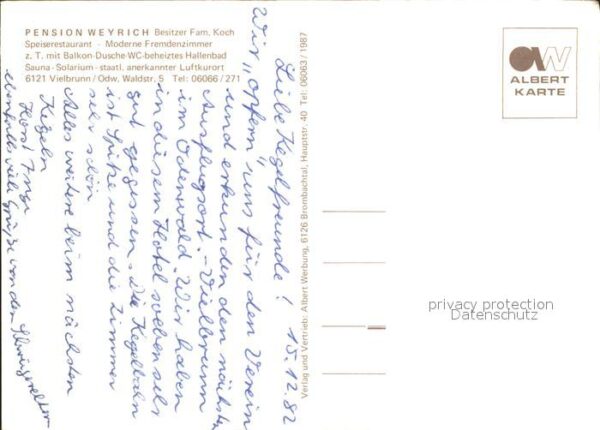 PENSION WEYRICH Besitzer Fam. Koch
Speiserestaurant - Moderne Fremdenzimmer
z. T. mit Balkon-Dusche-WC-beheiztes Hallenbad
Sauna - Solarium - staatl. anerkannter Luftkurort
6121 Vielbrunn/Odw, Waldstr. 5 Tel: 06066/271
ALBERT
KARTE
Verlag und Vertrieb: Albert Werbung, 6126 Brombachtal, Hauptstr. 40 Tel: 06063/1987
15.12.82
Liebe Kegelfreunde!
Wir "opfern" uns für den Verein
und erkunden den nächsten
Ausflugsort. - Vielbrunn
im Odenwald. Wir haben
in diesem Hotel soeben sehr
gut gegessen. Die Kegelbahn
ist Spitze und die Zimmer
sehr schön
Alles weitere beim nächsten
Kegeln
Horst Inge
ebenfalls viele Grüße von den
privacy protection
Datenschutz